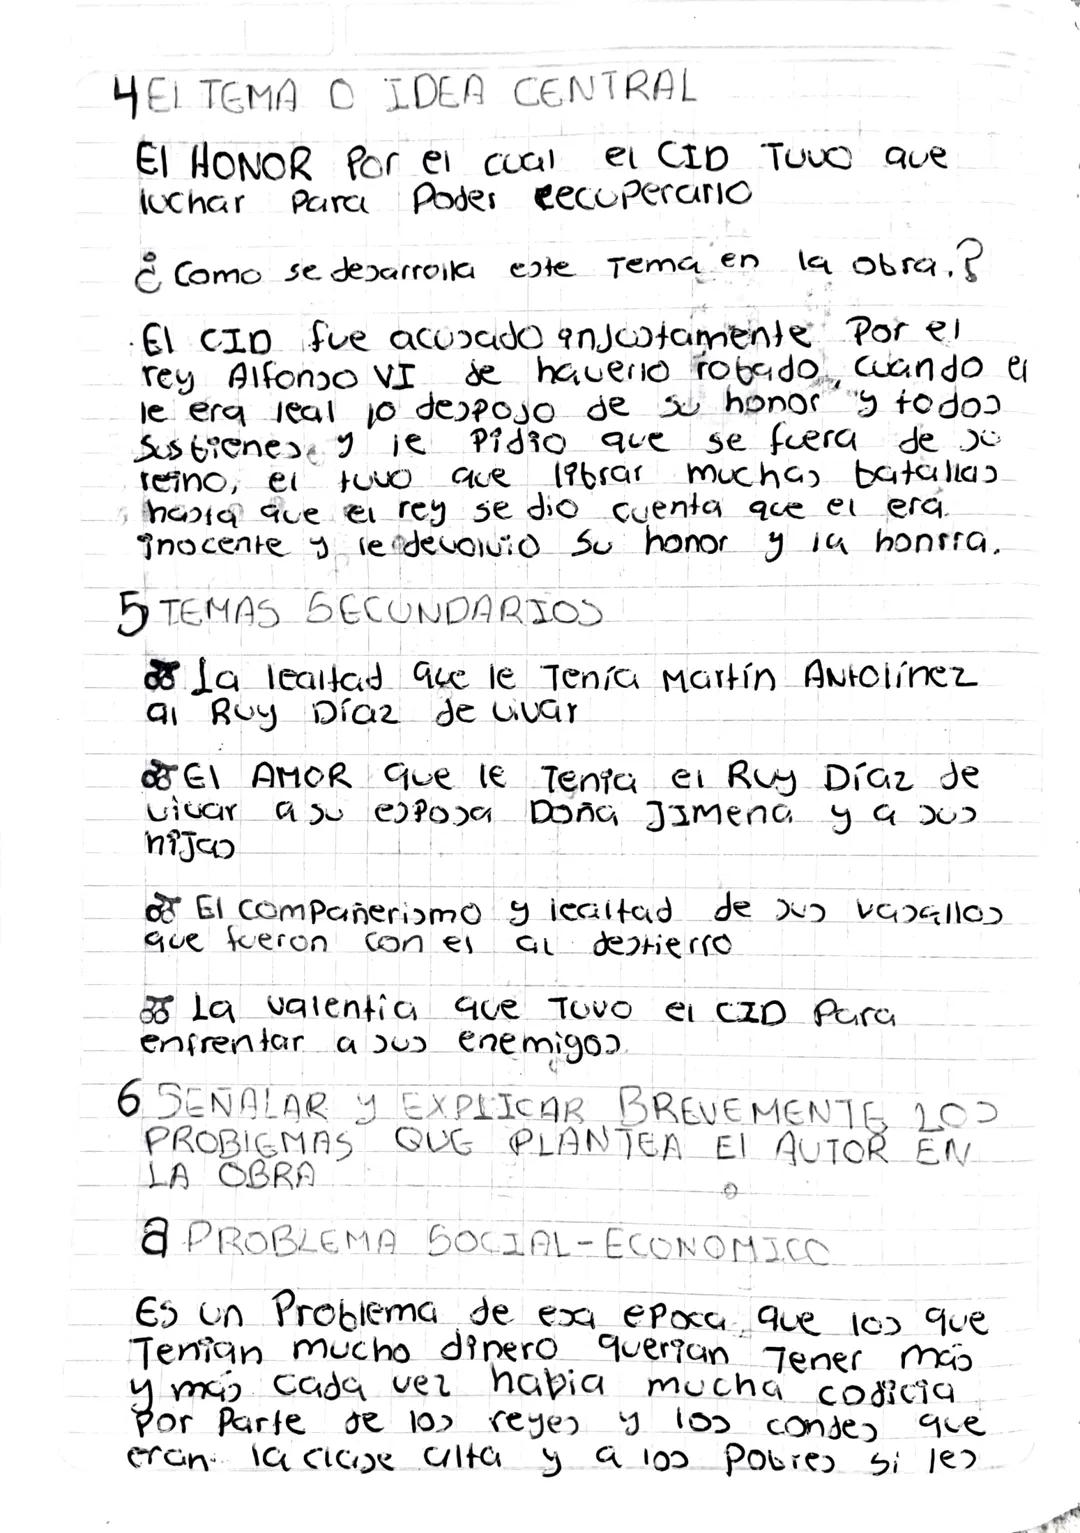 4 El TEMA O IDEA CENTRAL
El HONOR Por el cual el CID Tuvo que
luchar Para Poder recuperarlo
¿Como se desarrolla este Tema en la obra.?
El CID fue acusado injustamente Por el
rey Alfonso VI de haverlo robado, cuando el
le era leal lo despojo de su honor y todos
sus bienes y le Pidio que se fuera de su
reino, el tuvo que librar muchas batallas
hasta que el rey se dio cuenta que el era
inocente y le devolvio su honor y la honrra.
5 TEMAS SECUNDARIOS
La lealtad que le Tenía Martín Antolínez
al Ruy Díaz de vivar
El AMOR que le Tenia el Ruy Díaz de
vivar a su esposa Doña JImena y a sus
hijas
El compañerismo y lealtad de sus vasallos
que fueron con el al destierro
La valentia que Tuvo el CID Para
enfrentar a sus enemigos
6 SEÑALAR y EXPLICAR BREVEMENTE LOS
PROBlEMAS QUE PLANTEA El AUTOR EN
LA OBRA
a PROBLEMA SOCIAL-ECONOMICO
Es un Problema de esa epoca que los que
Tenian mucho dinero querian Tener más
y más cada vez habia mucha codicia
Por Parte de los reyes y los condes que
eran la clase alta y a los Pobres si les